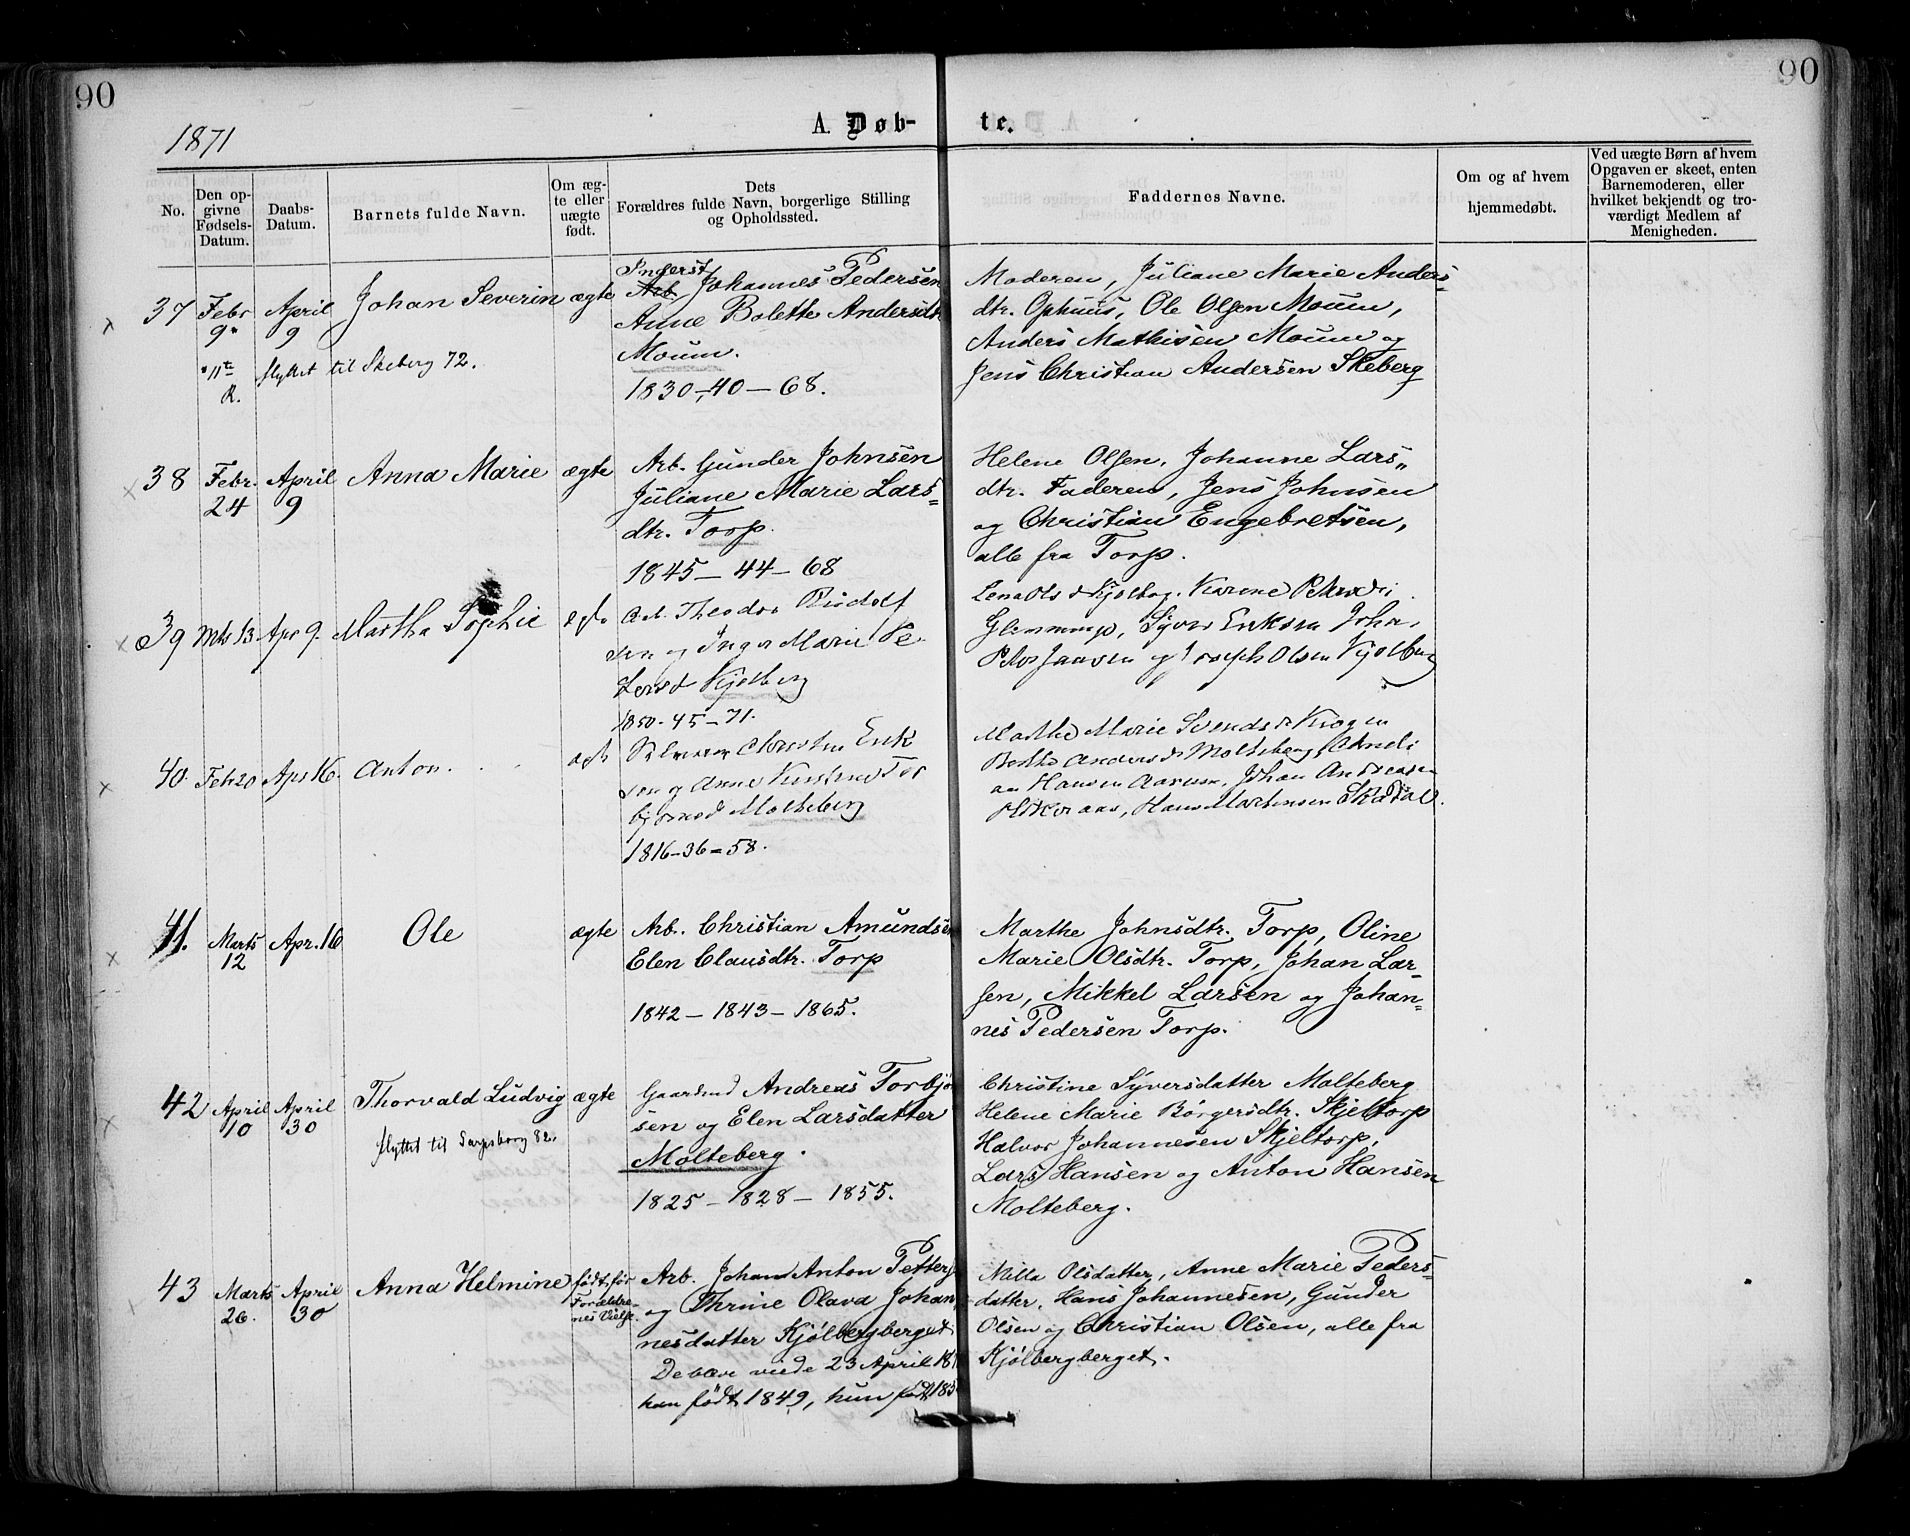 90
90
1871
A. Døb-
te.
No.
Den op-
givne
Fødsels-
Datum.
Daabs-
Datum.
Barnets fulde Navn.
Om æg-
te eller
uægte
født.
Dets
Forældres fulde Navn, borgerlige Stilling
og Opholdssted.
Faddernes Navne.
Om og af hvem
hjemmedøbt.
Ved uægte Børn af hvem
Opgaven er skeet, enten
Barnemoderen, eller
hvilket bekjendt og tro-
værdigt Medlem af
Menigheden.
37
Febr
9
April
9
Johan Severin
ægte
Inderst
Arb. Johannes Pedersen
Anne Bolette Andersdtr
Moum.
1830-40-68.
flyttet til Skeberg 72.
Moderen, Juliane Marie Anders-
dtr. Ophuus, Ole Olsen Moum,
Anders Mathisen Moum og
Jens Christian Andersen Skeberg
38
Febr.
24
April
9
Anna Marie
ægte
Arb. Gunder Johnsen
Juliane Marie Lars-
dtr. Torp.
1845-44-68
Helene Olsen, Johanne Lars-
dtr. Faderen, Jens Johnsen
og Christian Engebretsen,
alle fra Torp.
39
Mts 13
Apr 9.
Martha Sophie
ægte
Arb. Theodor Rudolf
sen og Inger Marie Pe
tersd Kjølberg
1850-45-71.
Glemminge, Syver Eriksen
Olsen Kjølberg
40.
Feb 20
Apr 16.
Anton.
ægte
Christen Erik
sen og Anne Kirstine Tor
bjørnsd Molteberg
1816-36-58.
Marthe Marie Svendsd Krogen
Andersd Molteberg,
Hansen Aarum, Johan Andreasen
Hans Martinsen SkaDal.
41.
Marts
12
Apr. 16
Ole
ægte
Arb. Christian Amundsen
Elen Clausdtr. Torp
1842-1843-1865.
Marthe Johnsdtr. Torp, Oline
Marie Olsdtr. Torp, Johan Lar-
sen, Mikkel Larsen og Johan-
nes Pedersen Torp.
42
April
10
April
30
Thorvald Ludvig
ægte
flyttet til Sarpsborg 82.
Gaardmd Andreas Torbjø
sen og Elen Larsdatter
Molteberg.
1825-1828-1855.
Christine Syversdatter Molteberg
Helene Marie Børgersdtr. Skjeltorp
Halvor Johannesen Skjeltorp,
Lars Hansen og Anton Hansen
Molteberg.
43
Marts
26.
April
30
Anna Helmine
født før
Forældre-
nes Vielse.
Arb. Johan Anton Petters
og Thrine Olava Johan
nesdatter Kjølbergberget
De bleve viede 23 April 18
han født 1849, hun født 185
Milla Olsdatter, Anne Marie Peders-
datter, Hans Johannesen, Gunder
Olsen og Christian Olsen, alle fra
Kjølbergberget.